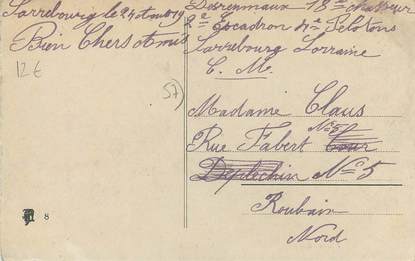 Sarrebourg le 24 Aout 19
Bien Chers Amis
12€
57)
Desrenmaux 18e chasseur
2e Escadron 4e Pelotons
Sarrebourg Lorraine
C. M.
Madame Claus
Rue Fabert N°5
Cour
Deplechin N°5
Roubaix
Nord
8